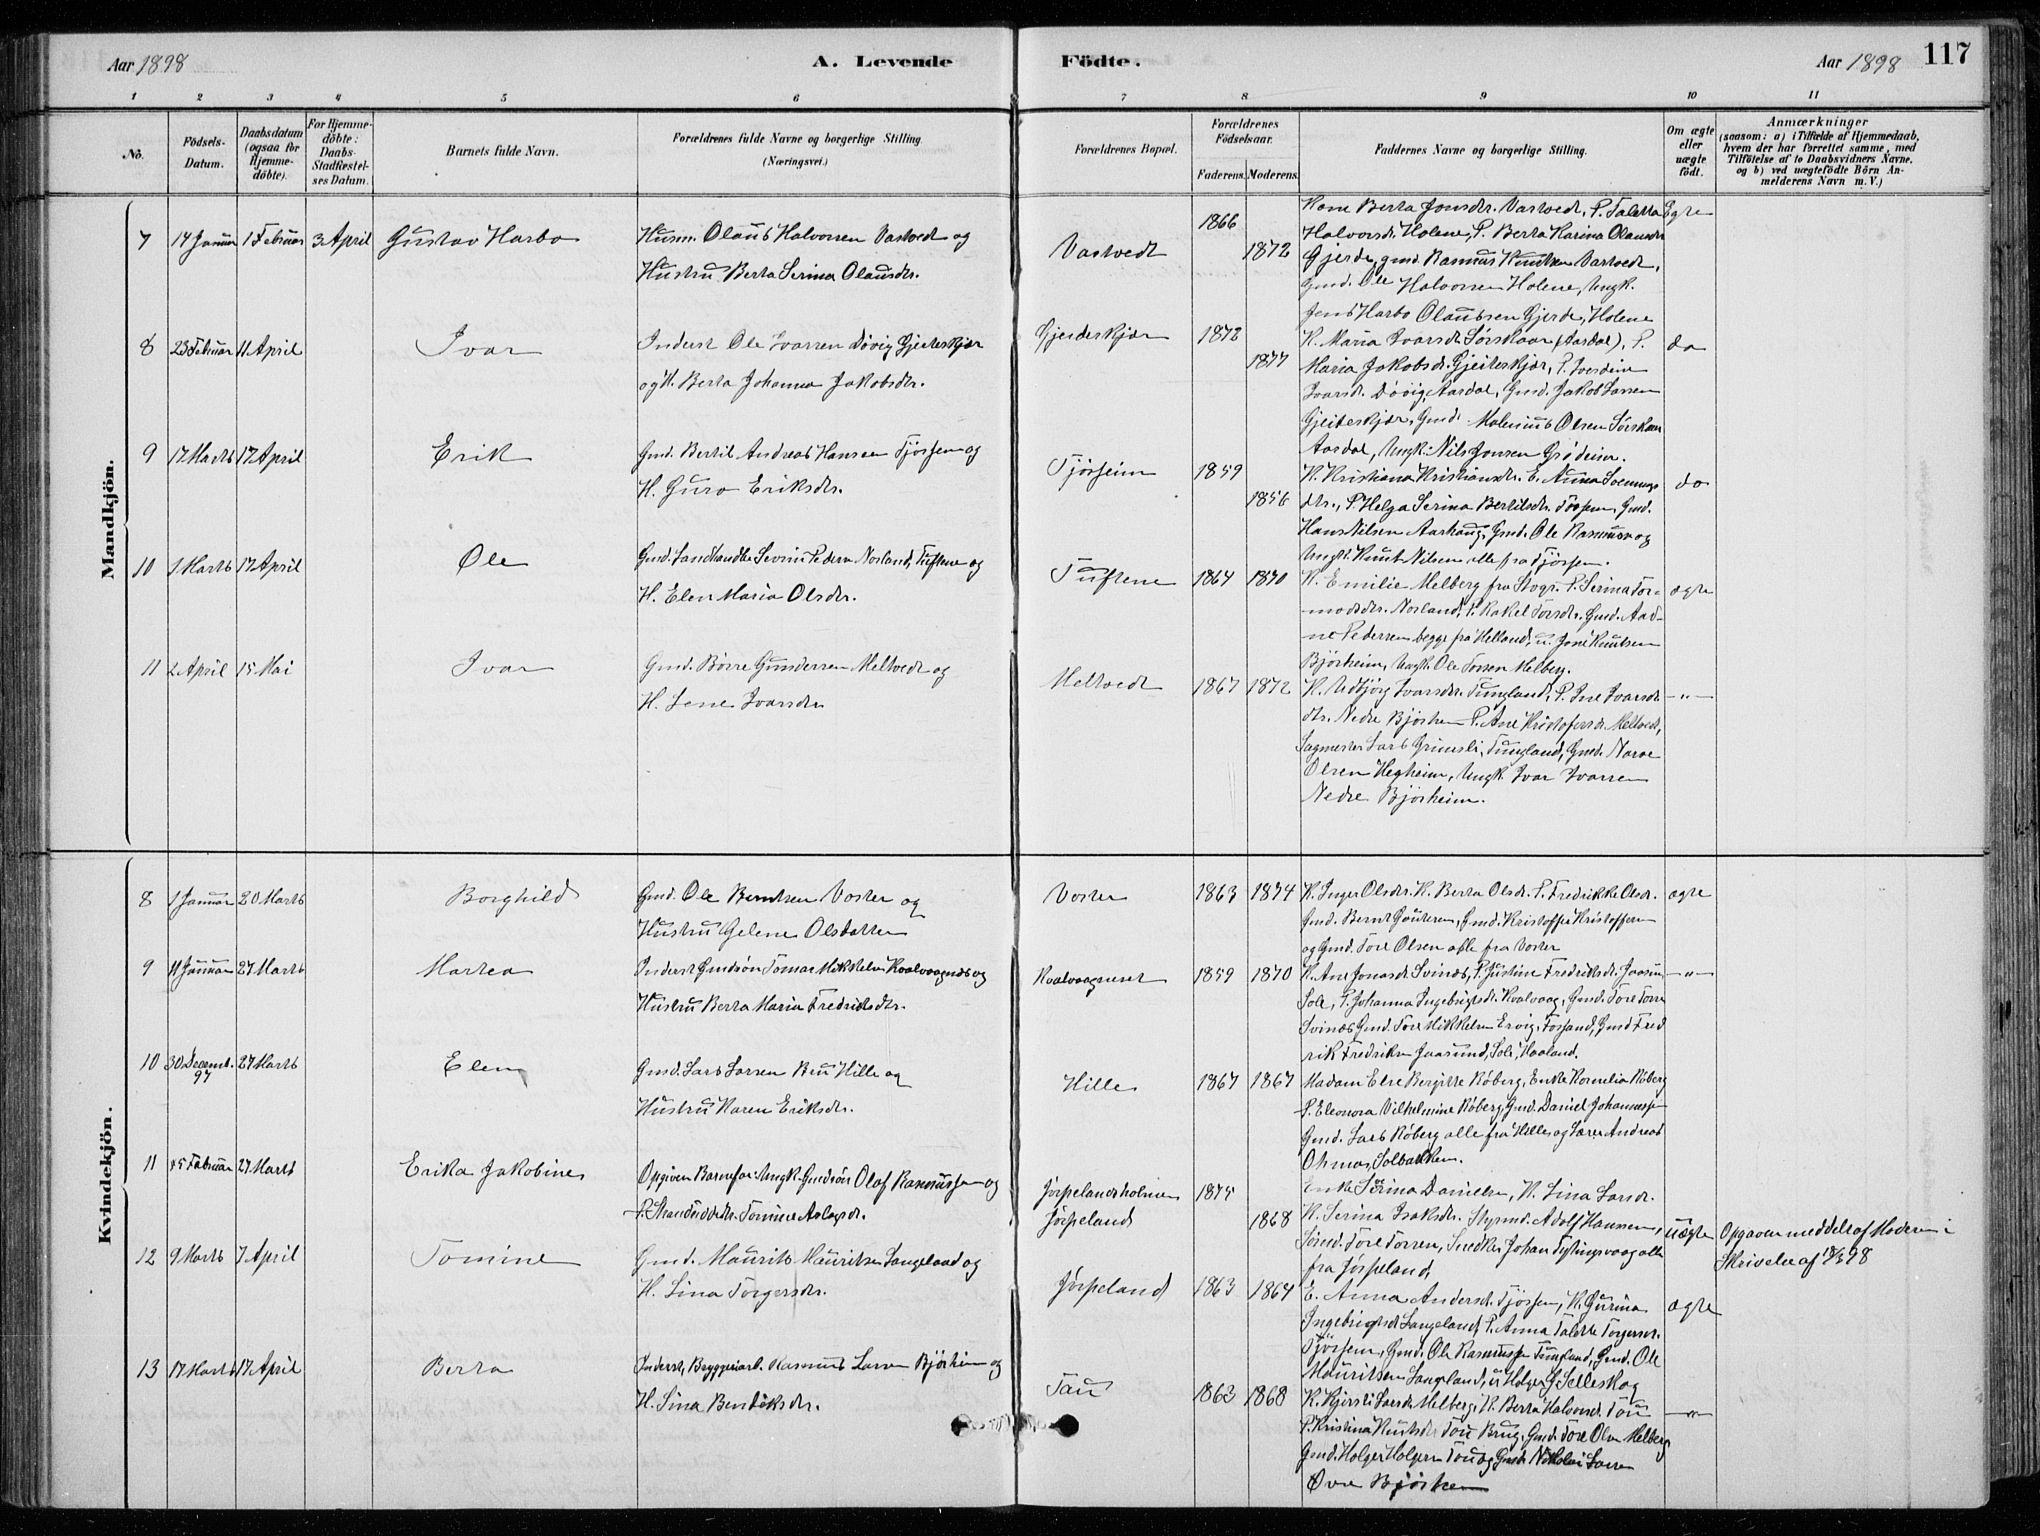 Aar 1898 A. Levende Födte. Aar 1898 117
1 2 3 4 5 6 7 8 9 10 11
No. Födsels-Datum. Daabsdatum (ogsaa for Hjemme-döbte). For Hjemme-döbte: Daabs-Stadfæstel-ses Datum. Barnets fulde Navn. Forældrenes fulde Navne og borgerlige Stilling. (Næringsvei.) Forældrenes Bopæl. Forældrenes Födselsaar. Faderens. Moderens. Faddernes Navne og borgerlige Stilling. Om ægte eller uægte födt. Anmærkninger (saasom: a) i Tilfælde af Hjemmedaab, hvem der har forrettet samme, med Tilföielse af to Daabsvidners Navne. og b) ved uægtefödte Börn An-melderens Navn m. V.)
Mandkjön.
7 14 Januar 1 Februar 3 April Gustav Harbo Husm. Olaus Halvorsen Vastvedt og
Hustru Berta Serina Olausdtr.
Vastvedt 1866 1872
Kone Berta Jonsdtr. Vastvedt, P. Taletta
Halvorsdt. Holene, P. Berta Karina Olausdtr
Gjerde, gmd. Rasmus Knutsen Vastvedt,
Gmd. Ole Halvorsen Holene, Ungk.
Jens Harbo Olaussen Gjerde, Holene
Egte
8 23 Februar 11 April Ivar Inderst Ole Ivarsen Dövig Gjeiteskjær
og H. Berta Johanna Jakobsdtr.
Gjeideskjær 1872 1877
K. Maria Ivarsdt. Sörskaar (Aardal), P.
Maria Jakobsdt. Gjeiteskjær, P. Iverdine
Ivarsdt. Dövig, Aardal, Gmd. Jakob Larsen
Gjeiteskjær, Gmd. Molenius Olsen Sörskaar
Aardal, Ungk. Nils Jonsen Grödeim.
do
9 17 Marts 17 April Erik Gmd. Bertil Andreas Hansen Tjössem og
H. Guro Eriksdtr.
Tjösseim 1859 1856
K. Kristiana Kristiansdtr. E. Anna Soennings
dtr., P. Helga Serina Bertilsdt. Tjössem, Gmd.
Hans Nilsen Aarhaug, Gmd. Ole Rasmussen og
Ungk. Knut Nilsen alle fra Tjössem.
do
10 1 Marts 17 April Ole Gmd. Landhandler Sevrin Pedersen Norland, Tuftene og
H. Elen Maria Olsdtr.
Tuftene 1864 1870
K. Emilie Melberg fra Stvgr. P. Serina Tor-
modsdtr. Norland, P. Rakel Torsdtr. Gmd. Aad-
ne Pedersen begge fra Helland, u. Jone Knutsen
Björheim, Ungk. Ole Torsen Melberg.
ægte
11 2 April 15 Mai Ivar Gmd. Börre Gundersen Meltvedt og
H. Lene Ivarsdtr
Meltvedt 1867 1872
K. Udbjörg Ivarsdtr. Tungland, P. Ine Ivarsdt
dtr. Nedre Bjöshem P. Ane Kristofersdt. Meltvedt,
Sagmester Lars Grimsli, Tungland, Gmd. Narve
Olsen Hegheim, Ungk. Ivar Ivarsen
Nedre Björheim.
— „ —
Kvindekjön.
8 1 Januar 20 Marts Borghild Gmd. Ole Berntsen Voster og
Hustru Gelene Olsdatter
Voster 1863 1874
K. Inger Olsdtr. K. Berta Olsdt. P. Fredrikke Olsdt.
Gmd. Bernt Goutesen, Gmd. Kristoffer Kristoffersen
og Gmd. Tore Olsen alle fra Voster
ægte
9 11 Januar 27 Marts Martea Inderst Gmdsön Tomas Mikkelsen Kvalvaagnes og
Hustru Berta Maria Fredriksdtr.
Kvalvaagneset 1859 1870
K. Ane Jonasdt. Svinæs, P. Justine Fredriksdt. Jaasund
Sole, P. Johanna Ingebrigtsdt. Kvalvaag, Gmd. Tore Torsen
Svinæs Gmd. Tore Mikkelsen Ervig, Fossand, Gmd Fred
rik Fredriksen Jaasund, Sole, Haaland.
— „ —
10 30 Decemb. 97 27 Marts Elen Gmd. Lars Larsen Bru Hille og
Hustru Karen Eriksdtr.
Hille 1867 1867
Madam Else Bergitte Röberg, Enke Kornelia Röberg
P. Eleonora Vilhelmine Röberg, Gmd. Daniel Johannessen
Gmd. Lars Röberg alle fra Hille og Lærer Andreas
Ohma, Solbakken.
11 15 Februar 27 Marts Erika Jakobine Opgiven Barnefar: Ungk. Gmdsön Olaf Rasmussen og
P. Strandsiddedt. Tomine Aslagsdt.
Jörpelandsholmen
Jörpeland
1875 1868
Enke Serina Danielsen, K. Lina Larsdt.
K. Serina Isaksdt. Styrmd. Adolf Hansen,
Sömd. Tore Torsen, Snedker Johan Tytingsvaag alle
fra Jörpeland,
uægte Opgaven meddelt af Moderen i
Skrivelse af 18/3 98
12 9 Marts 7 April Tomine Gmd. Maurits Mauritsen Langeland og
H. Lina Torgersdtr.
Jörpeland 1863 1864
E. Anna Andersdt. Tjössem, K. Gurina
Ingebrigtsdt Langeland, P. Anna Talette Torgersdt.
Tjössem, Gmd. Ole Rasmussen Tungland, Gmd. Ole
Mauritsen Langeland, u. Holger G Selleskog
ægte
13 17 Marts 17 April Berta Inderst, Bryggeriarb. Rasmus Larsen Björheim og
H. Lina Bendiksdtr.
Tau 1863 1868
K. Kjersti Larsdt. Melberg, K. Berta Halvorsdt. Tou
P. Kristina Knutsdtr Tou Brug, Gmd. Tore Olsen Melberg
Gmd. Holger Holgersen Tou og Gmd. Nikolai Larsen
Övre Bjösheim
— „ —